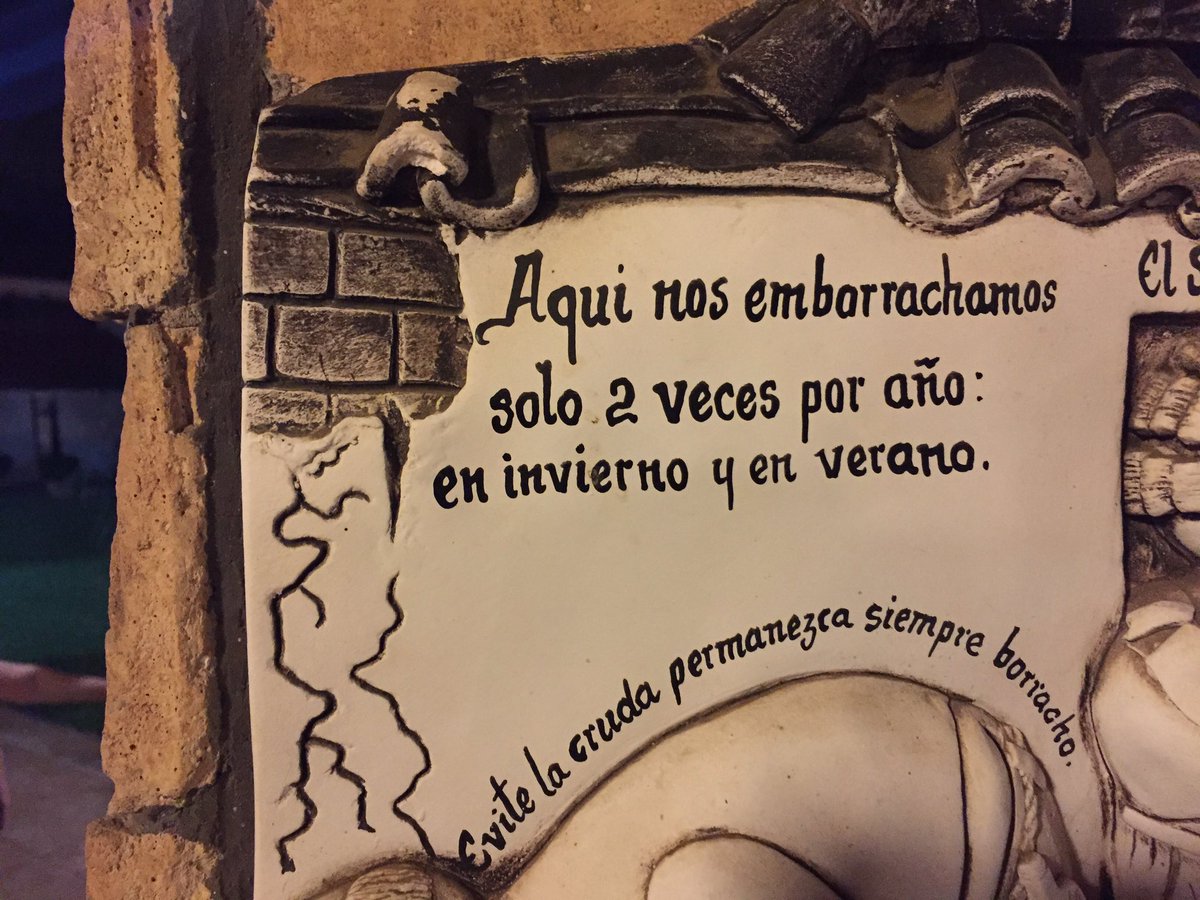 Aqui nos emborrachamos
solo 2 veces por año:
en invierno y en verano.
El
Evite la cruda permanezca siempre borracho.